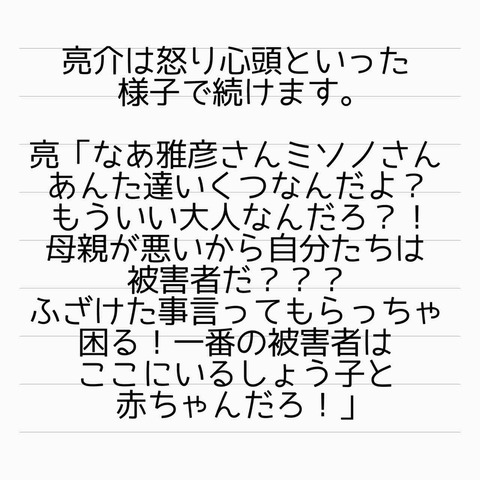 亮介は怒り心頭といった
様子で続けます。
亮「なあ雅彦さんミソノさん
あんた達いくつなんだよ？
もういい大人なんだろ？！
母親が悪いから自分たちは
被害者だ？？？
ふざけた事言ってもらっちゃ
困る！一番の被害者は
ここにいるしょう子と
赤ちゃんだろ！」